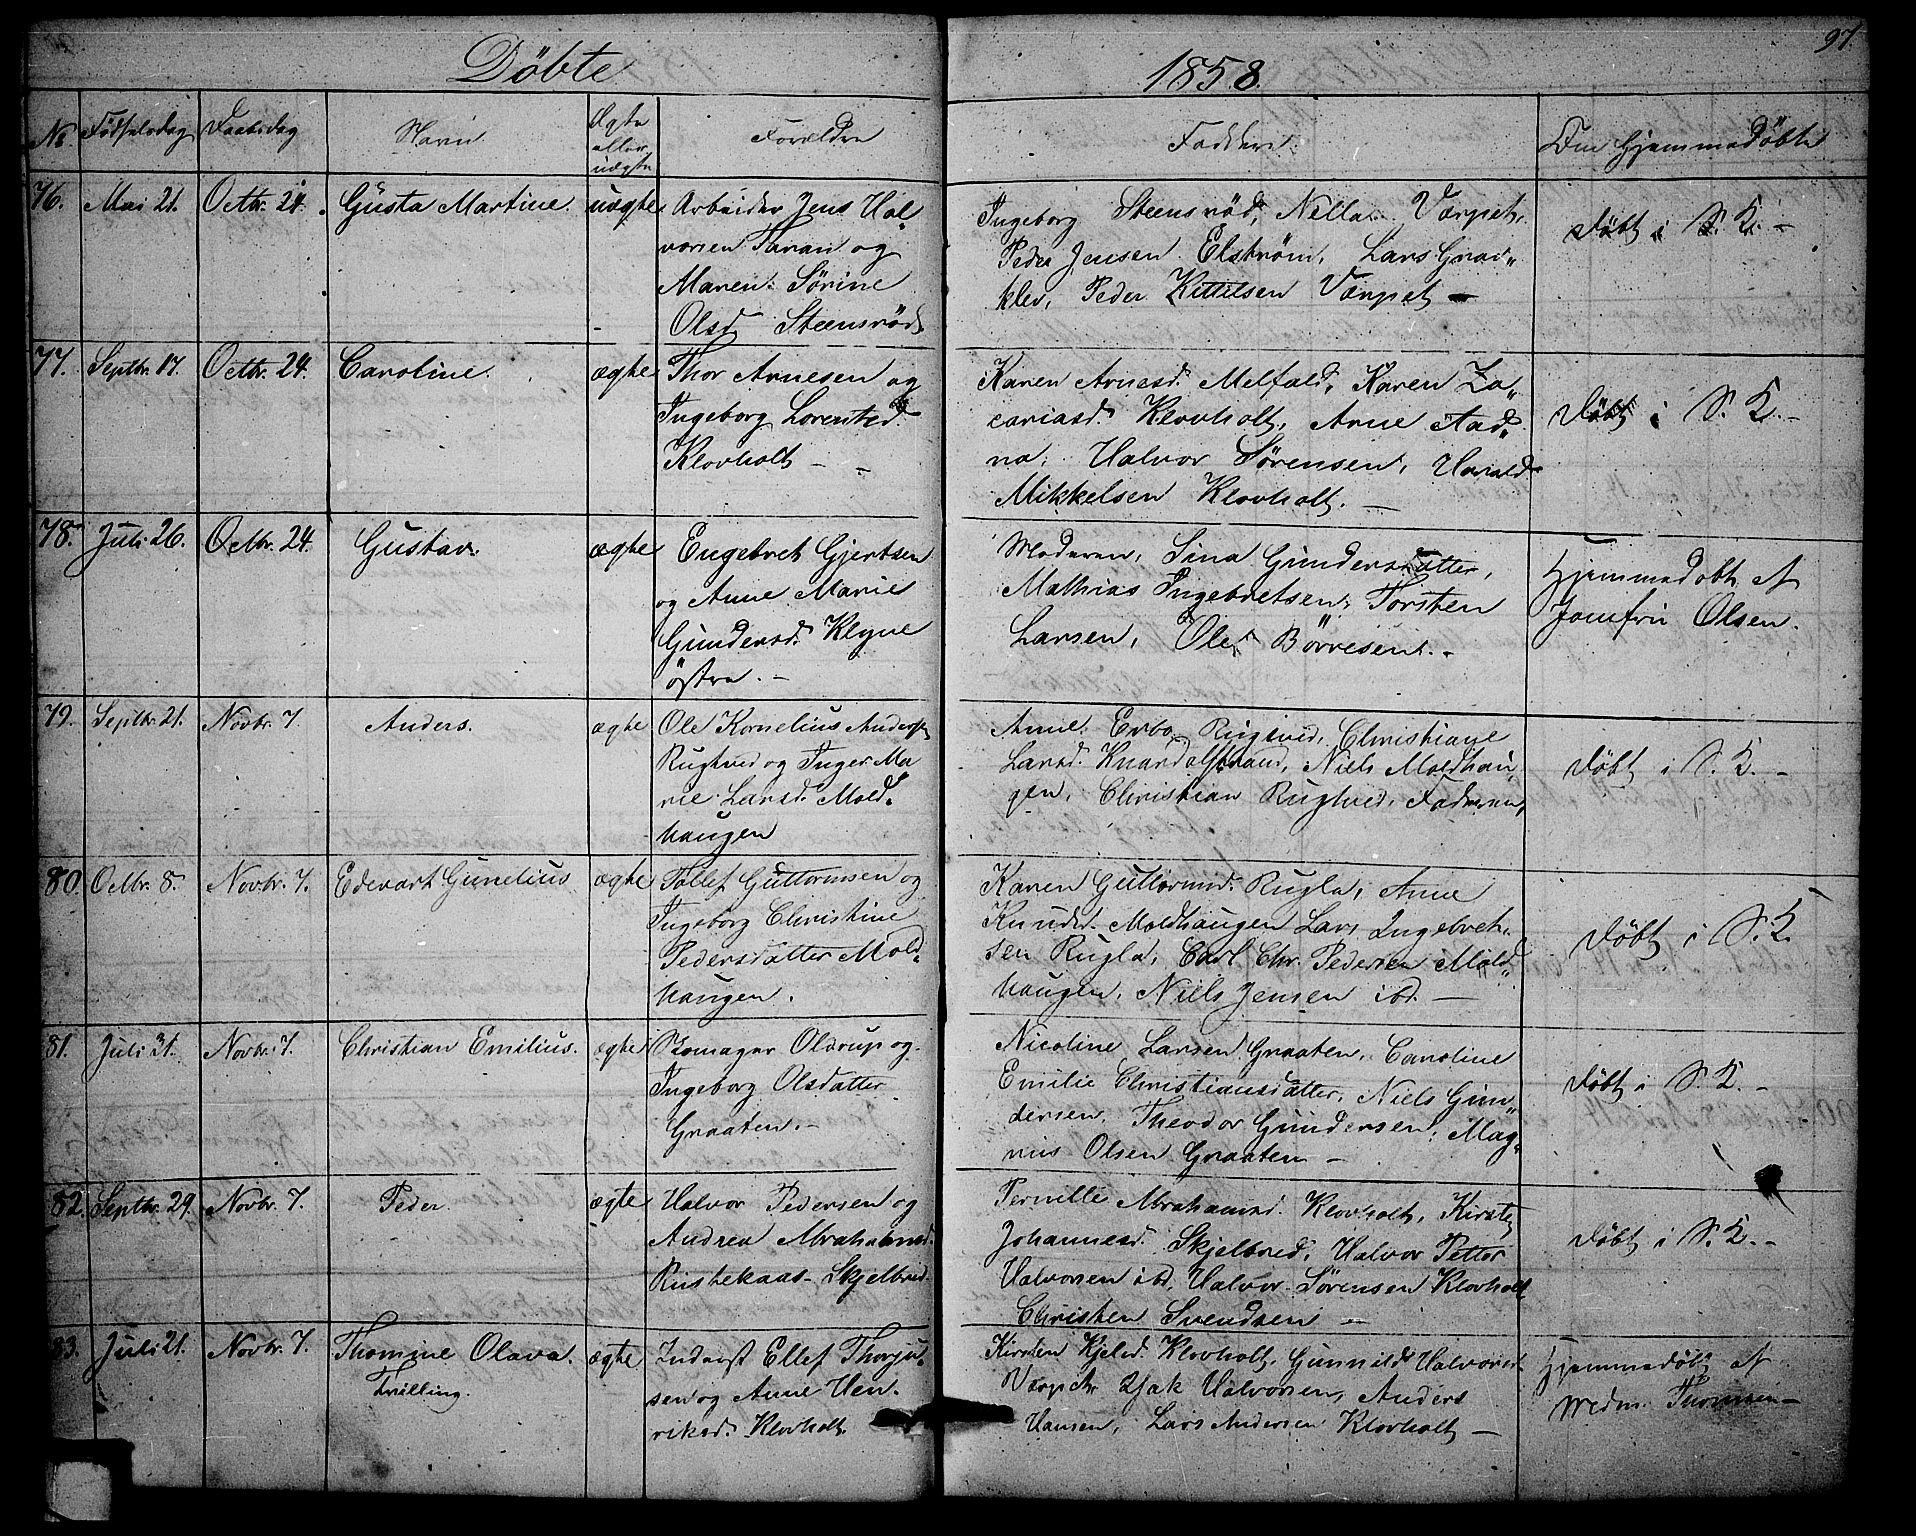 Döbte 1858. 97.
No Födselsdag Daabsdag Navn Ægte eller uægte Forældre Faddere Om Hjemmedöbte
76. Mai 21. Octbr. 24. Gusta Martine. uægte Arbeider Jens Hal-
vorsen Tavan og
Maren Sörine
Olsd Steensröd
Ingeborg Steensröd, Nella Værpet,
Peder Jensen Elström, Lars Grad„
klev, Peder Kittilsen Værpet —
Döbt i S. K. –
77. Septbr. 17. Octbr. 24. Caroline. ægte Thor Arnesen og
Ingeborg Lorentsd.
Klovholt – –
Karen Arnesd. Melfald, Karen Za„
cariasd. Klovholt, Arne Aad„
na, Halvor Sörensen, Harald
Mikkelsen Klovholt. —
Döbt i S. K. –
78. Juli 26. Octbr. 24. Gustav. ægte Engebret Gjertsen
og Anne Marie
Gundersd. Klyve
östre. –
Moderen, Sina Gundersdatter,
Mathias Ingebretsen, Torsten
Larsen, Ole Börresen. –
Hjemmedöbt af
Jomfru Olsen.
79. Septbr. 21. Novbr. 7. Anders. ægte Ole Kornelius Anders
Rugtved og Inger Ma
rie Larsd. Mold„
haugen
Anne Rugtved, Christiane
Larsd. Knardalstrand, Niels Moldhau„
gen, Christian Rugtved, Faderen,
Döbt i S. K. –
80. Octbr. 8. Novbr. 7. Edevart Gunelius ægte Tollef Guttormsen og
Ingeborg Christine
Pedersdatter Mold„
haugen.
Karen Guttormsd. Rugla, Anne
Knudsd. Moldhaugen Lars Ingebret-
sen Rugla, Carl Chr. Pedersen Mold„
haugen, Niels Jensen ibd. —
Döbt i S. K.
81. Juli 31. Novbr. 7. Christian Emilius. ægte Skomager Oldrup og
Ingeborg Olsdatter
Graaten. –
Nicoline Larsen Graaten, Caroline
Emilie Christiansdatter, Niels Gun„
dersen, Theodor Gundersen, Mag„
nus Olsen Graaten —
Döbt i S. K. –
82. Septbr. 29. Novbr. 7. Peder. ægte Halvor Pedersen og
Andrea Abrahamsd.
Rustekaas – Skjelbred
Pernille Abrahamsd. Klovholt, Kirsten
Johannesd. Skjelbred, Halvor Petter
Halvorsen ibd, Halvor Sörensen Klovholt
Christen Svendsen —
Döbt i S. K. –
83. Juli 21. Novbr. 7. Thomine Olava.
Tvilling.
ægte Inderst Ellef Thorju„
sen og Anne Hen„
riksd. Klovholt.
Kirsten Kjelsd. Klovholt, Gunnild Halvorsd
Værpet Isak Halvorsen, Anders
Hansen, Lars Andersen Klovholt —
Hjemmedöbt af
Thomsen —